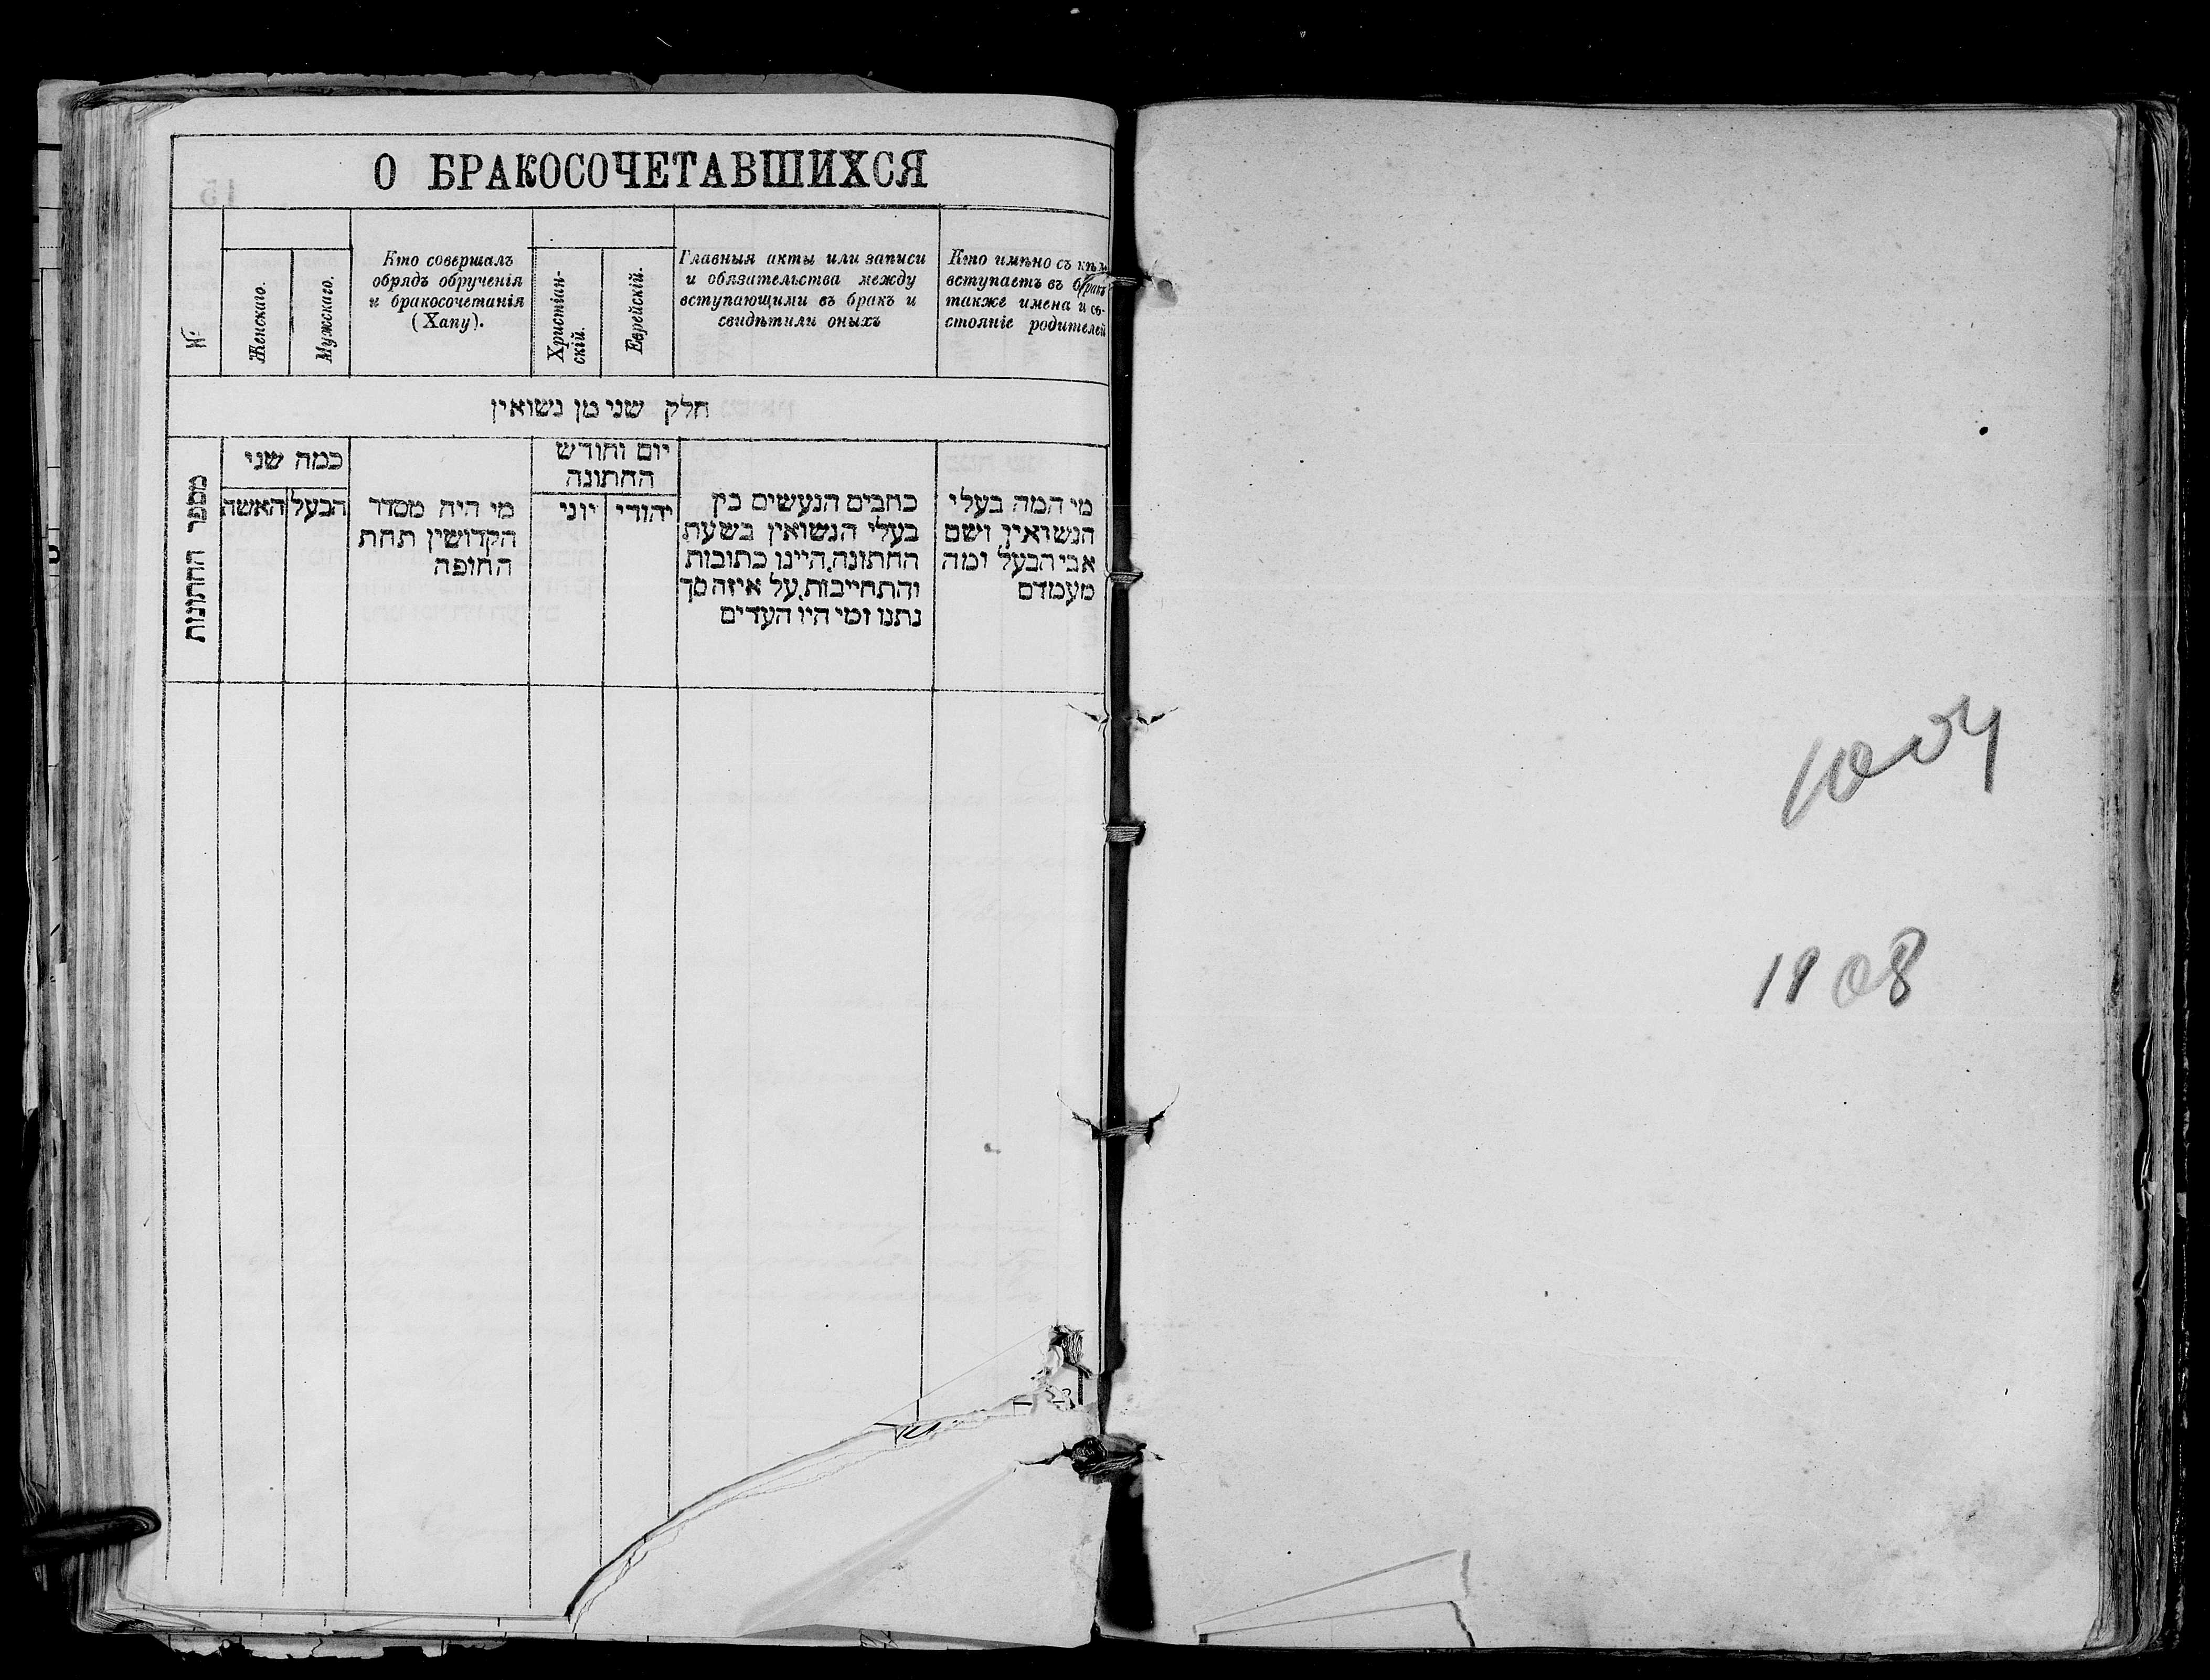 О БРАКОСОЧЕТАВШИХСЯ
№
Женскаго.
Мужскаго.
Кто совершалъ
обрядъ обрученія
и бракосочетанія
(Хапу).
Христіан-
скій.
Еврейскій.
Главныя акты или записи
и обязательства между
вступающими въ бракъ и
свидѣтили оныхъ
Кто имѣно съ кѣм
вступаетъ въ бракъ
также имена и со-
стояніе родителей
חלק שני מן נשואין
מספר החתונות
כמה שני
האשה
הבעל
מי היה מסדר
הקדושין תחת
החופה
יום וחודש
החתונה
יוני
יהודי
כתבים הנעשים בין
בעלי הנשואין בשעת
החתונה, היינו כתובות
והתחייבות, על איזה סך
נתנו ומי היו העדים
מי המה בעלי
הנשואין ושם
אבי הבעל ומה
מעמדם
15
1908